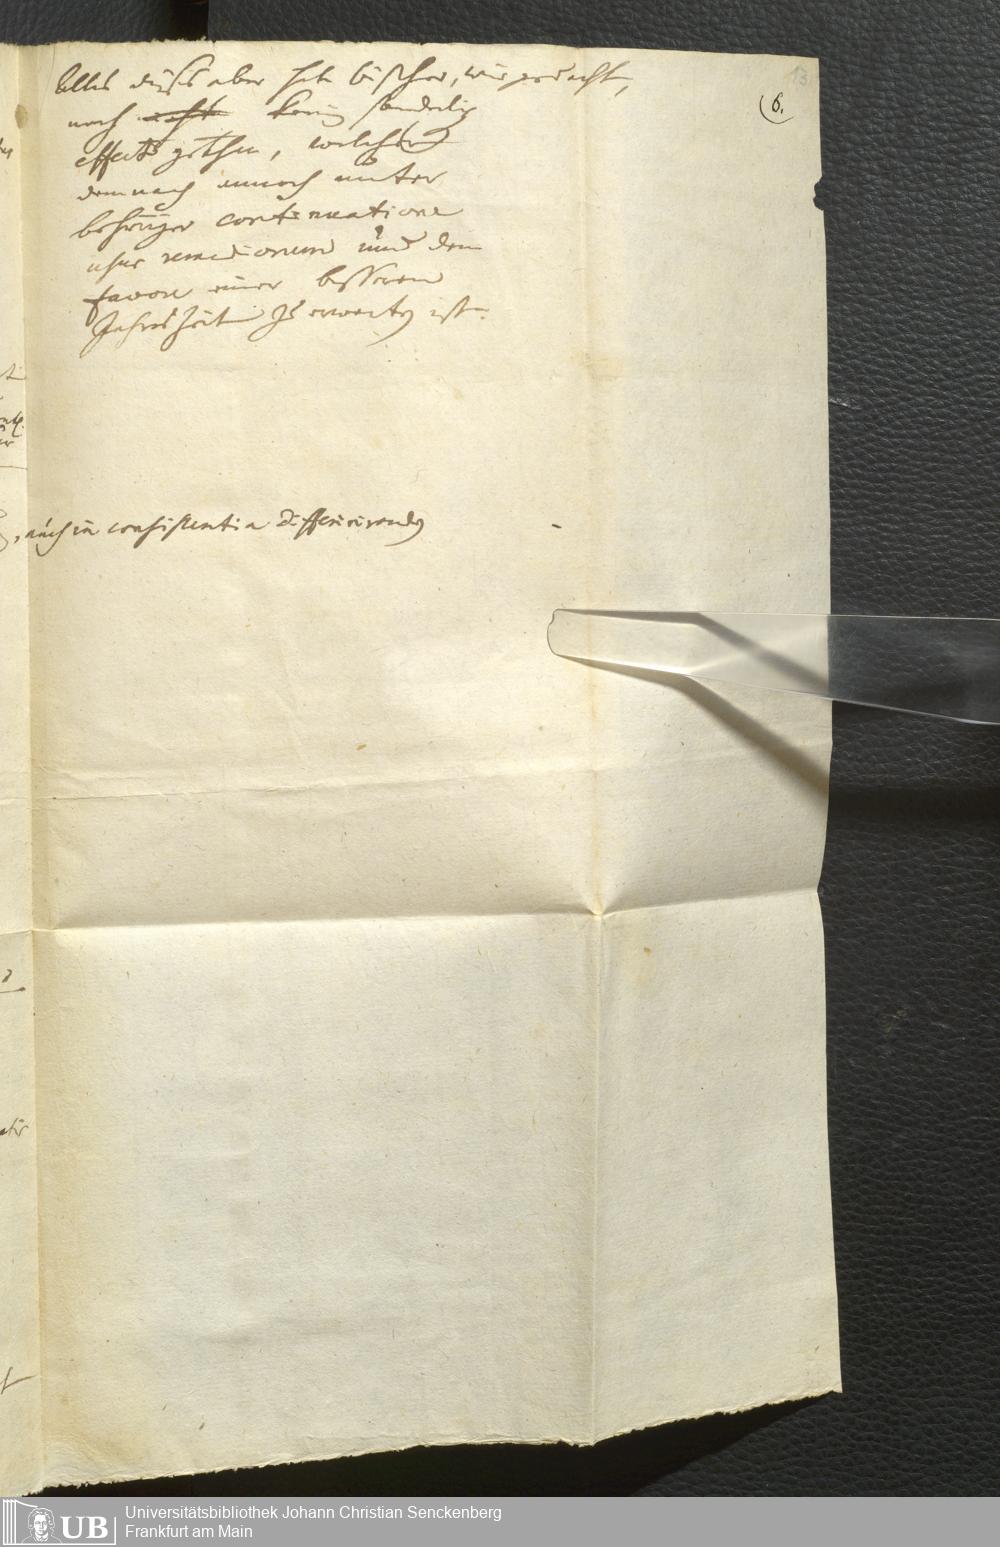 13
(6.
Alles dieses aber hat bißher, wie gedacht,
noch nicht keine sonderliche
effects gethan, welche
demnach annoch unter
behöriger continuatione
usus remediorum und dem
favore einer besseren
Jahreszeit zu erwarten ist.
, auch in consistentia differirendes
Universitätsbibliothek Johann Christian Senckenberg
Frankfurt am Main
UB